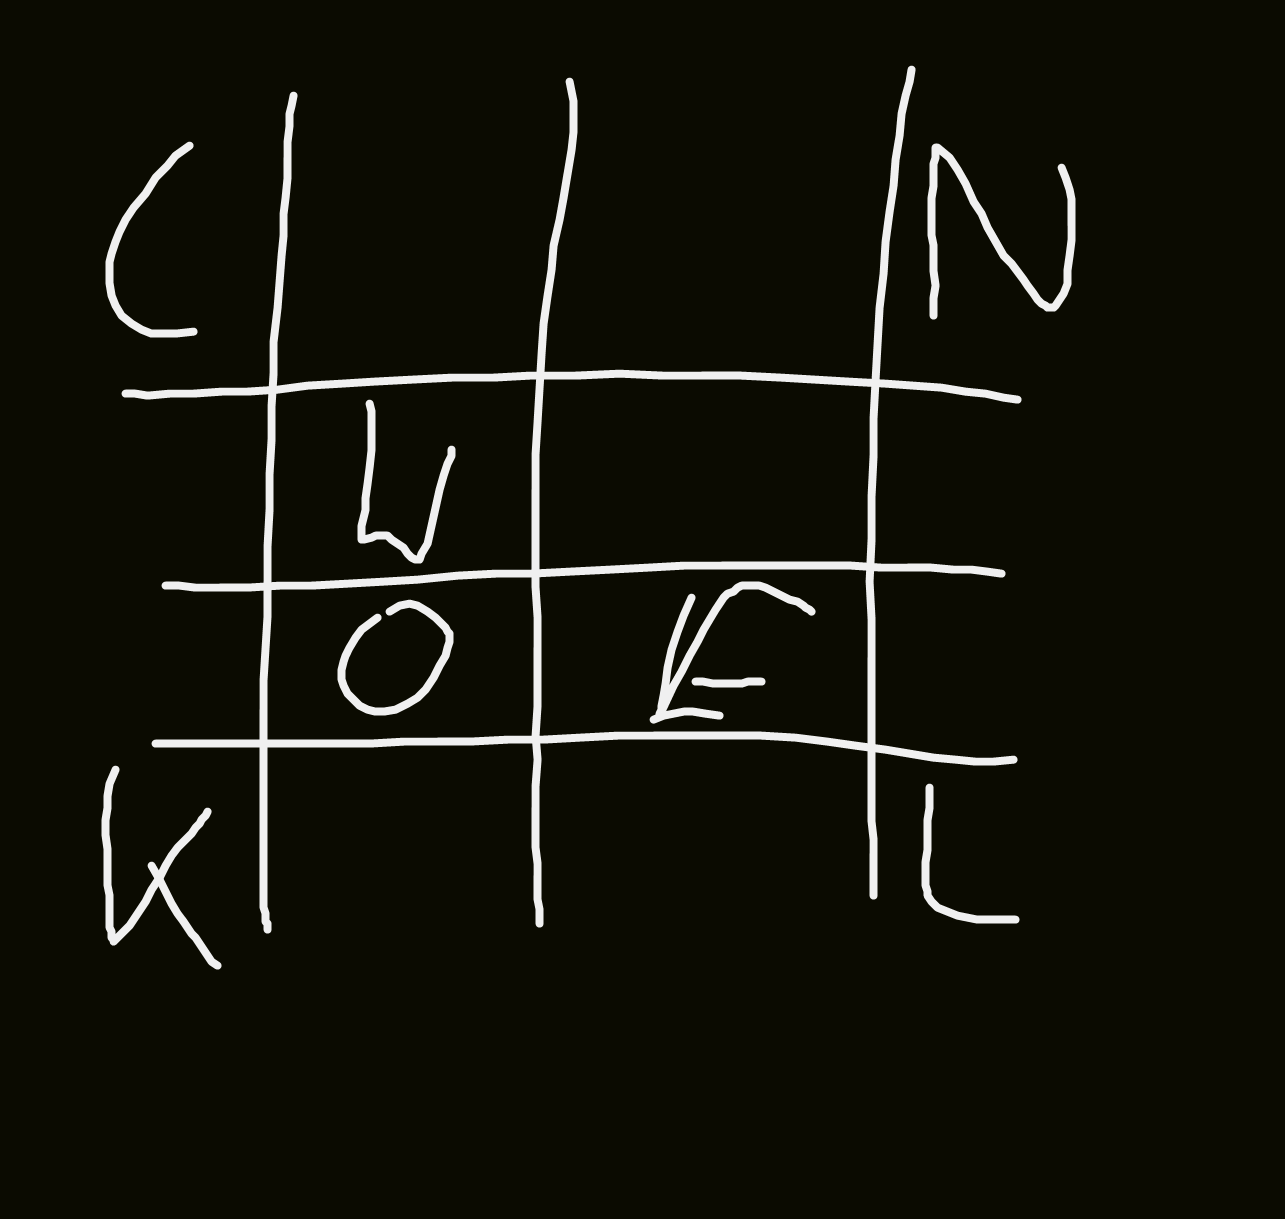 C N
W
O E
K L